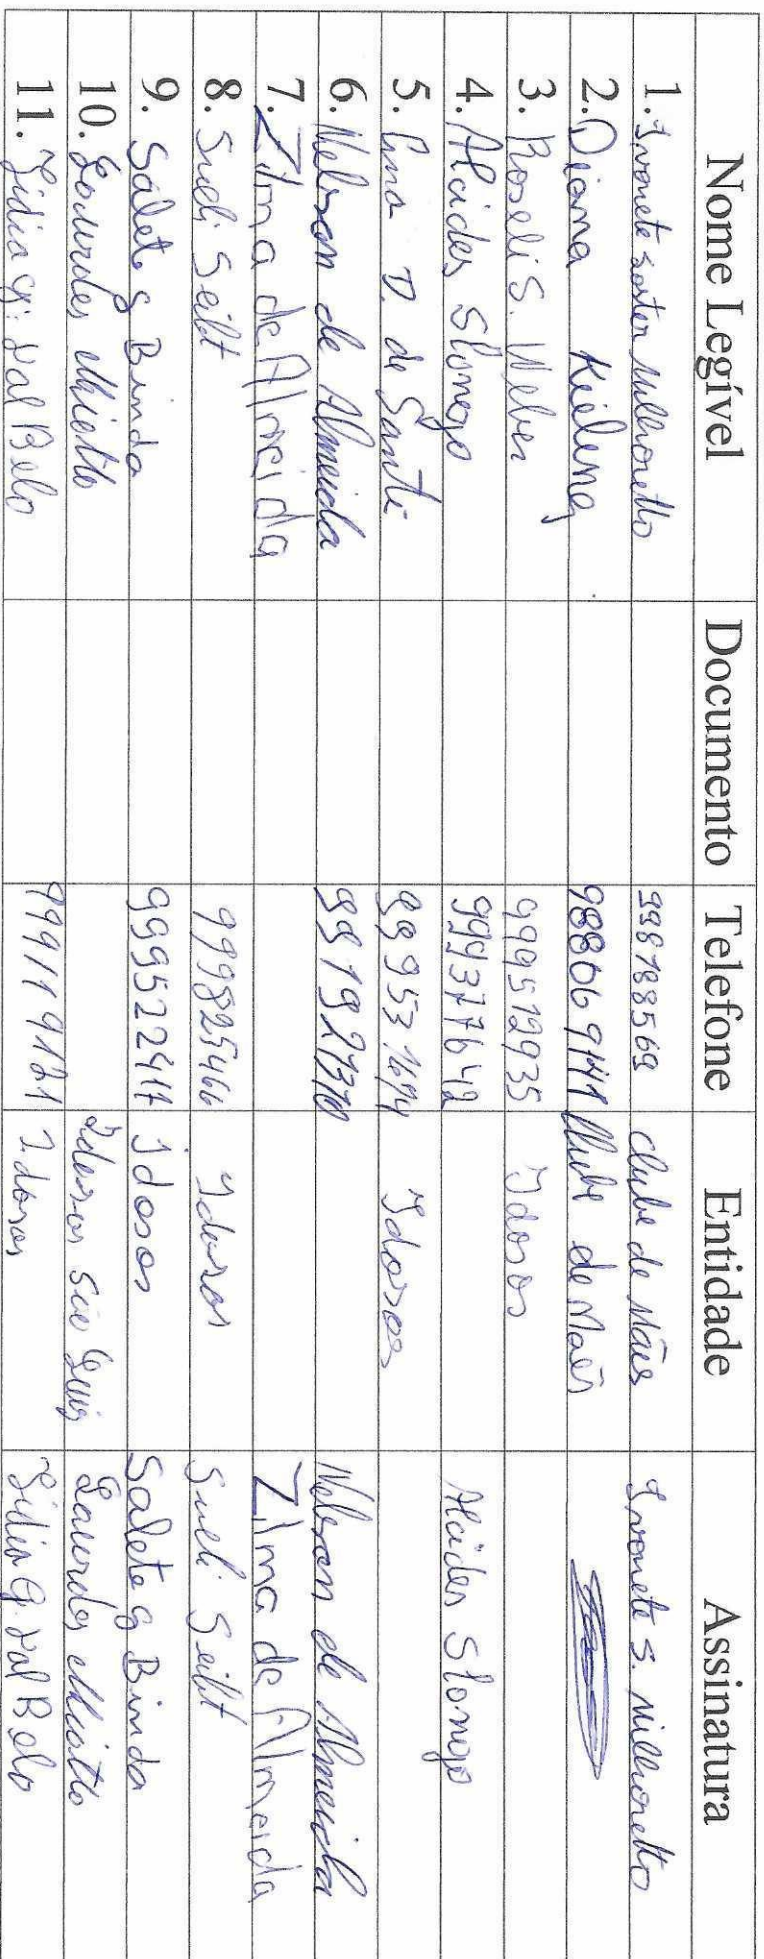 Nome Legível Documento Telefone Entidade Assinatura
1. Ivonete Sartor Milhonetto 998788569 Clube de Mães Ivonete S. Milhonetto
2. Diana 988069141 Clube de Mães
3. Roseli S. Weber 999512935 Idosos
4. Alcides Slongo 999377642 Alcides Slongo
5. Ana D. de Santi Idosos
6. Nelson de Almeida Nelson de Almeida
7. Zilma de Almeida Zilma de Almeida
8. Sueli Seibt 999825466 Idosos Sueli Seibt
9. Salete G Binda 999522417 Idosos Salete G Binda
10. Lourdes Miotto Idosos São Luiz Lourdes Miotto
11. Lidia G. Dal Belo 999119121 Idosos Lidia G. Dal Belo